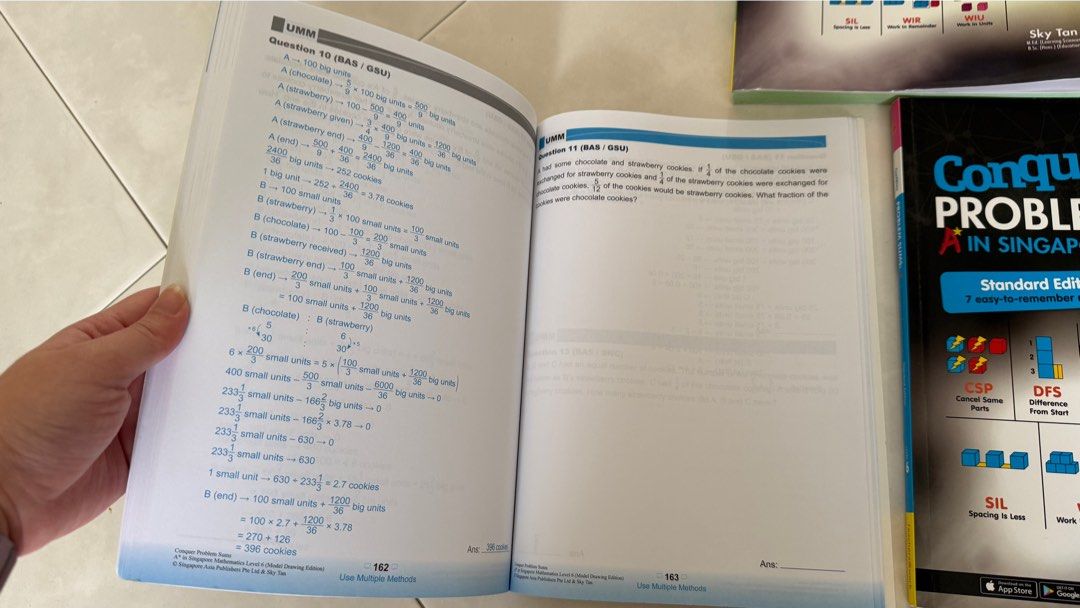 UMM
Question 10 (BAS / GSU)
A → 100 big units
A (chocolate) → 5/9 × 100 big units = 500/9 big units
A (strawberry) → 100 − 500/9 = 400/9 units
A (strawberry given) → 3/4 × 400/9 big units = 1200/36 big units
A (strawberry end) → 400/9 − 1200/36 = 400/36 big units
A (end) → 500/9 + 400/36 = 2400/36 big units
2400/36 big units → 252 cookies
1 big unit → 252 ÷ 2400/36 = 3.78 cookies
B → 100 small units
B (strawberry) → 1/3 × 100 small units = 100/3 small units
B (chocolate) → 100 − 100/3 = 200/3 small units
B (strawberry received) → 1200/36 big units
B (strawberry end) → 100/3 small units + 1200/36 big units
B (end) → 200/3 small units + 100/3 small units + 1200/36 big units
= 100 small units + 1200/36 big units
B (chocolate) : B (strawberry)
5 : 6
×6 ×5
30 : 30
6 × 200/3 small units = 5 × (100/3 small units + 1200/36 big units)
400 small units − 500/3 small units − 6000/36 big units → 0
233 1/3 small units − 166 2/3 big units → 0
233 1/3 small units − 166 2/3 × 3.78 → 0
233 1/3 small units − 630 → 0
233 1/3 small units → 630
1 small unit → 630 ÷ 233 1/3 = 2.7 cookies
B (end) → 100 small units + 1200/36 big units
= 100 × 2.7 + 1200/36 × 3.78
= 270 + 126
= 396 cookies
Ans: 396 cookies
Conquer Problem Sums
A* in Singapore Mathematics Level 6 (Model Drawing Edition)
© Singapore Asia Publishers Pte Ltd & Sky Tan
162
Use Multiple Methods
UMM
Question 11 (BAS / GSU)
had some chocolate and strawberry cookies. If 1/4 of the chocolate cookies were
changed for strawberry cookies and 1/4 of the strawberry cookies were exchanged for
chocolate cookies, 5/12 of the cookies would be strawberry cookies. What fraction of the
cookies were chocolate cookies?
Ans:
Problem Sums
in Singapore Mathematics Level 6 (Model Drawing Edition)
Singapore Asia Publishers Pte Ltd & Sky Tan
163
Use Multiple Methods
SIL
Spacing is Less
WIR
Work in Remainder
WIU
Work in Units
Sky Tan
Conqu
PROBLE
A* IN SINGAP
Standard Edit
7 easy-to-remember
CSP
Cancel Same
Parts
1
2
3
DFS
Difference
From Start
SIL
Spacing Is Less
Work
Download on the
App Store
GET IT ON
Google